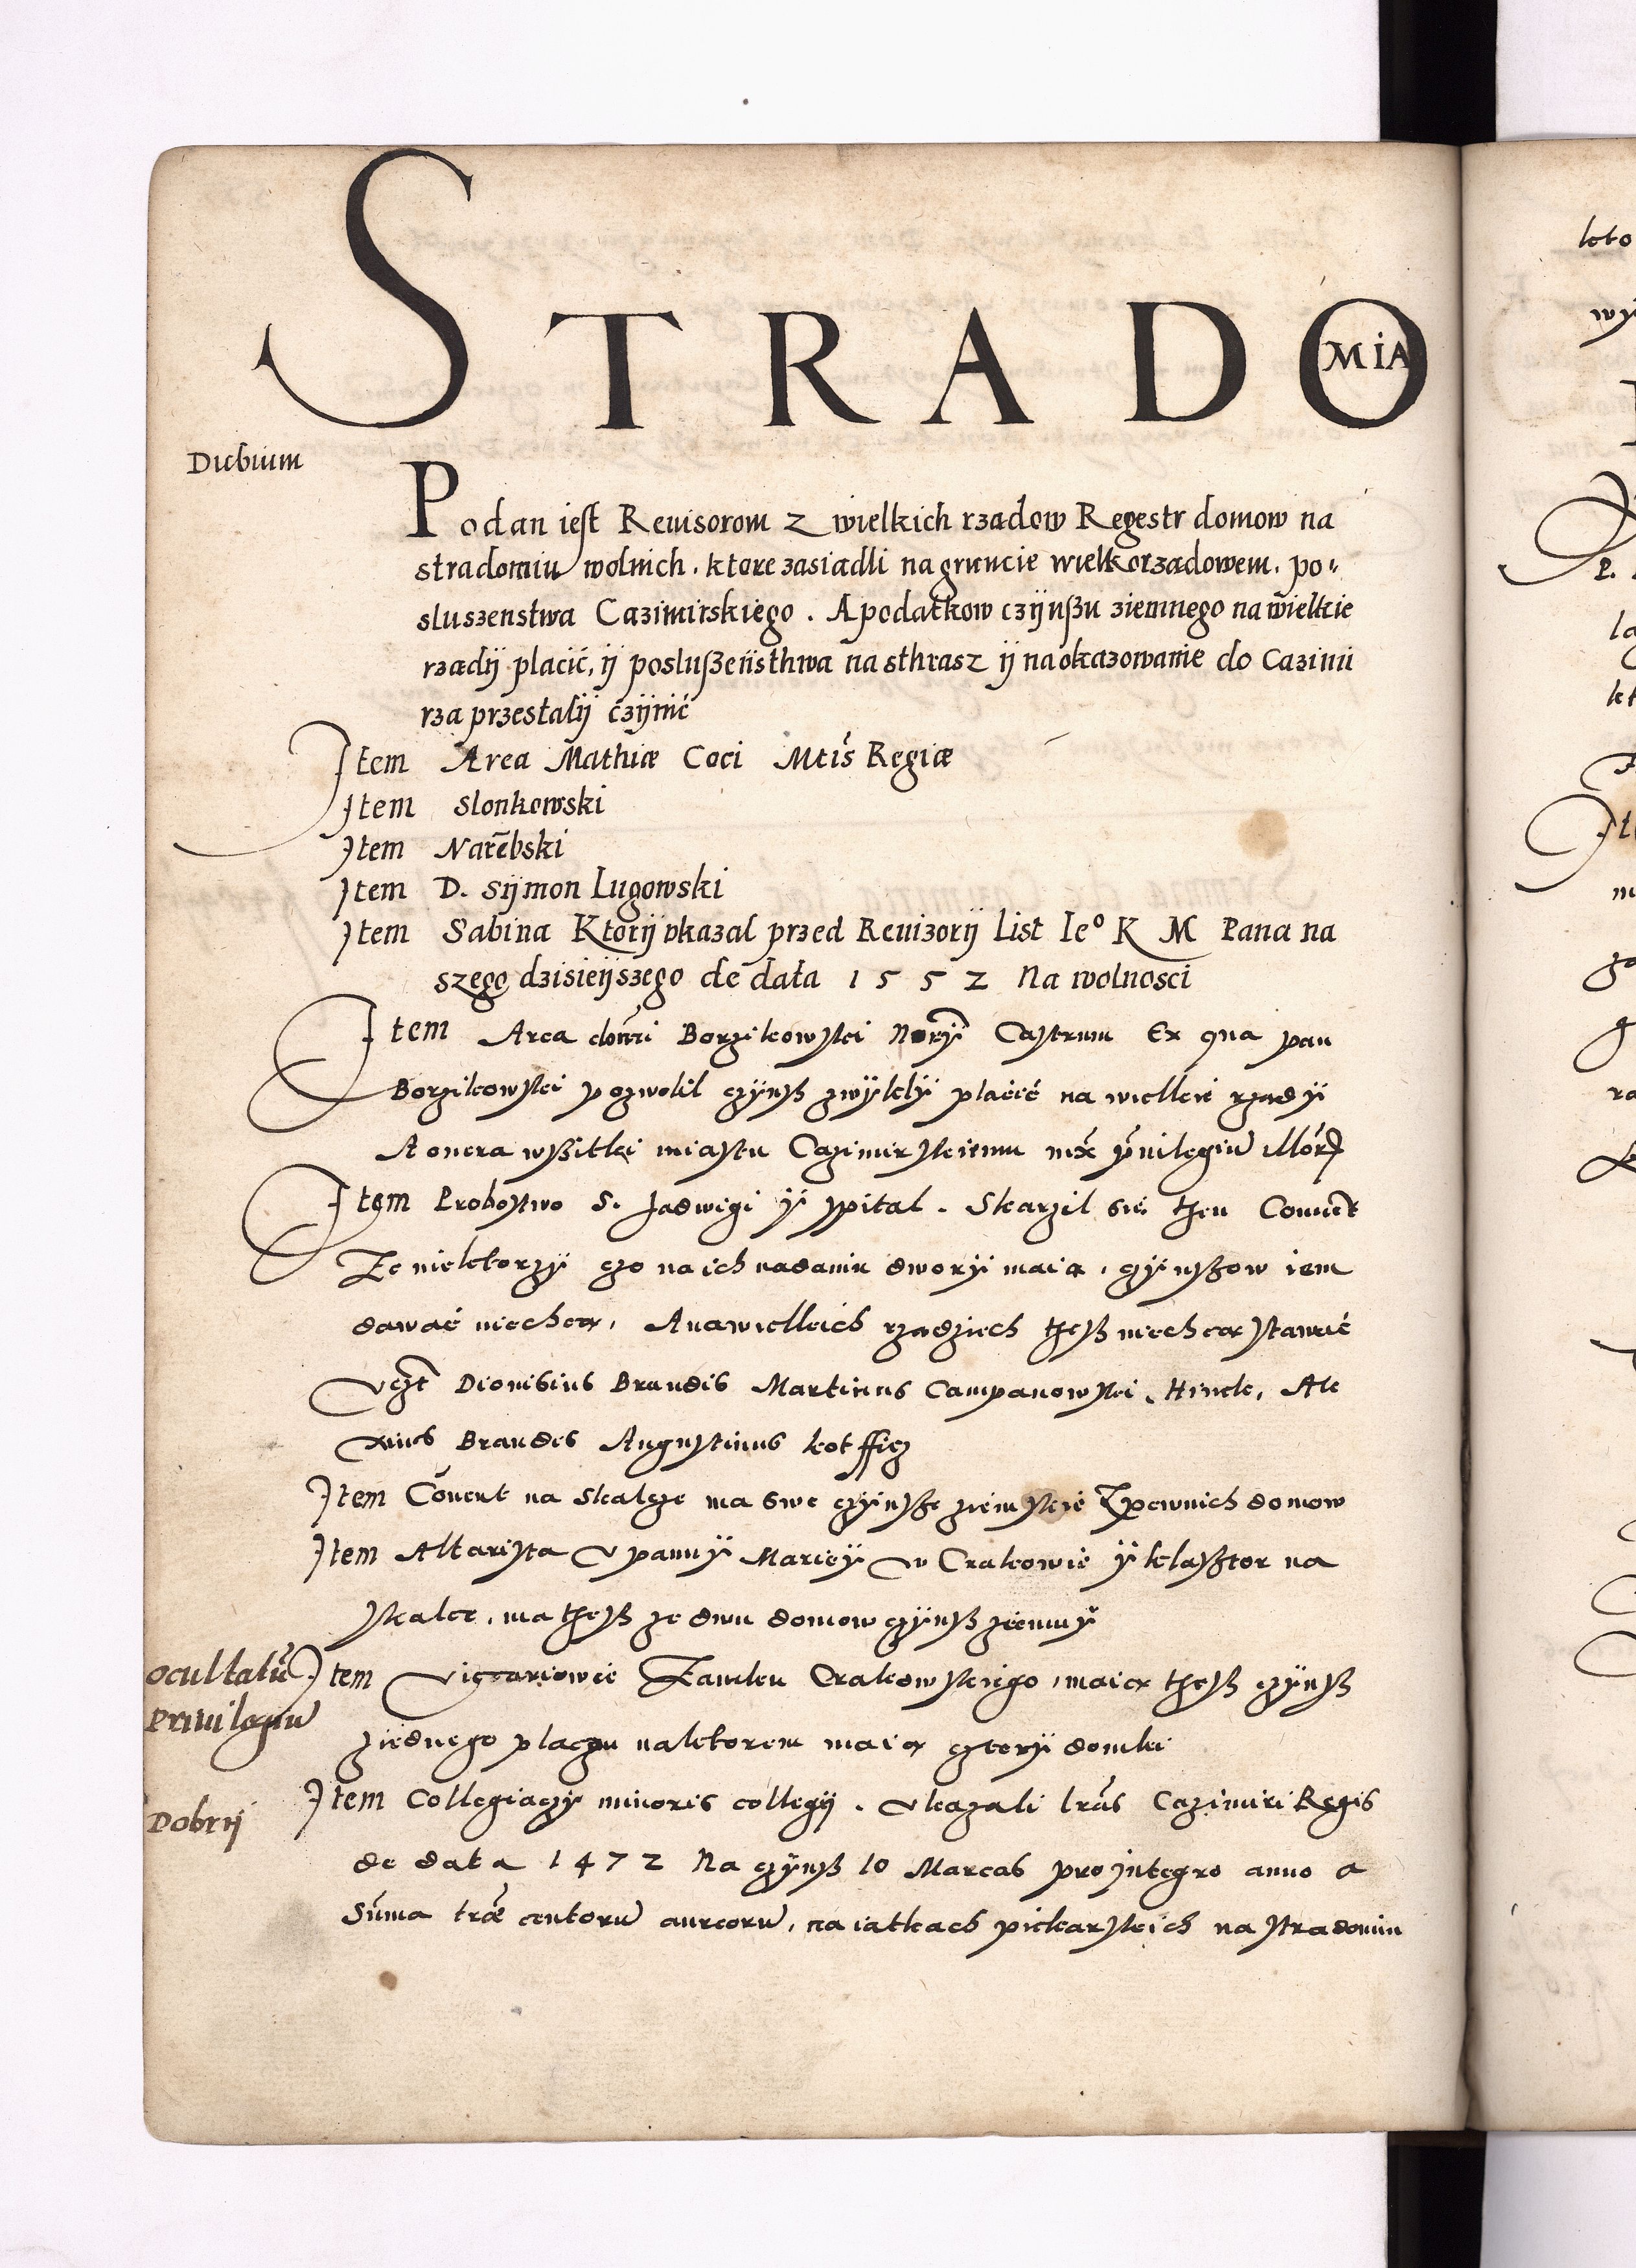 STRADO
MiA
Dubium
Podan iest Reuisorom z wielkich rzadow Regestr domow na
stradomiu wolnich. ktore zasiadli na gruncie wielkorzadowem. po„
sluszenstwa Cazimirskiego. A podatkow czijnßu ziemnego na wielkie
rzadij placić, ij poslußeństhwa na sthrasz ij na okazowanie do Cazimi
rza przestalij czijnić
Item Area Mathiæ Coci Mtis Regiæ
Item Slonkowski
Item Narębski
Item D. Sijmon Lugowski
Item Sabina Ktorij vkazal przed Reuizorij List Ieº K M Pana na
szego dzisieijszego de data 1552 Na wolnosci
Item Area Borzikowskei Castrum Ex qua pan
Borzikowskei pozwolil czÿnß zwÿklÿ placić na wielkie rzadÿ
A onera wßitki miastu Cazimirskiemu priuilegiu illor
Item Probostwo S. Jadwigi ÿ spital. Skarzil sie then Conuent
Ze niektorzÿ czo na ich nadaniu dworÿ maia, czÿnßow iem
dawać niechcą, A na wielkich rzadziech theß niechcą stawić
Dionisius Brandis Martinus Campanowski, Hinek, Ale
xius Brandis Augustinus kotfficz
Item Conuent na Skalcze ma swe czÿnße ziemskie Z pewnich domow
Item Altarista v pannÿ Marieÿ w Crakowie ÿ klaßtor na
skalce, ma theß ze dwu domow czÿnß ziemnÿ
ocultatu priuilegiu
Item Vicariowie Zamku Crakowskiego, maią theß czÿnß
ziednego placzu naktorem maią czterÿ domki
Dobrij
Item Collegiaczÿ minoris collegij. vkazali lras Cazimiri Regis
de data 1472 Na czÿnß 10 Marcas pro integro anno a
Suma centoru aureoru, na iatkach piekarskich na stradomiu